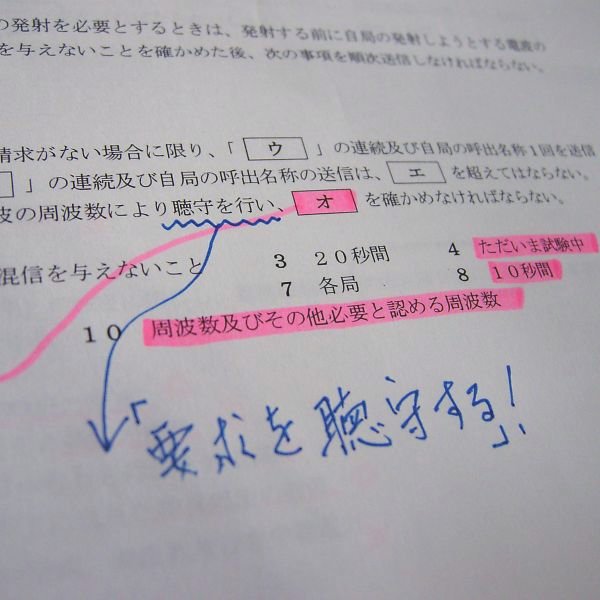 の発射を必要とするときは、発射する前に自局の発射しようとする電波の
を与えないことを確かめた後、次の事項を順次送信しなければならない。
請求がない場合に限り、「 ウ 」の連続及び自局の呼出名称1回を送信
」の連続及び自局の呼出名称の送信は、 エ を超えてはならない。
波の周波数により聴守を行い、 オ を確かめなければならない。
混信を与えないこと 3 20秒間 4 ただいま試験中
7 各局 8 10秒間
10 周波数及びその他必要と認める周波数
「要求を聴守する!」